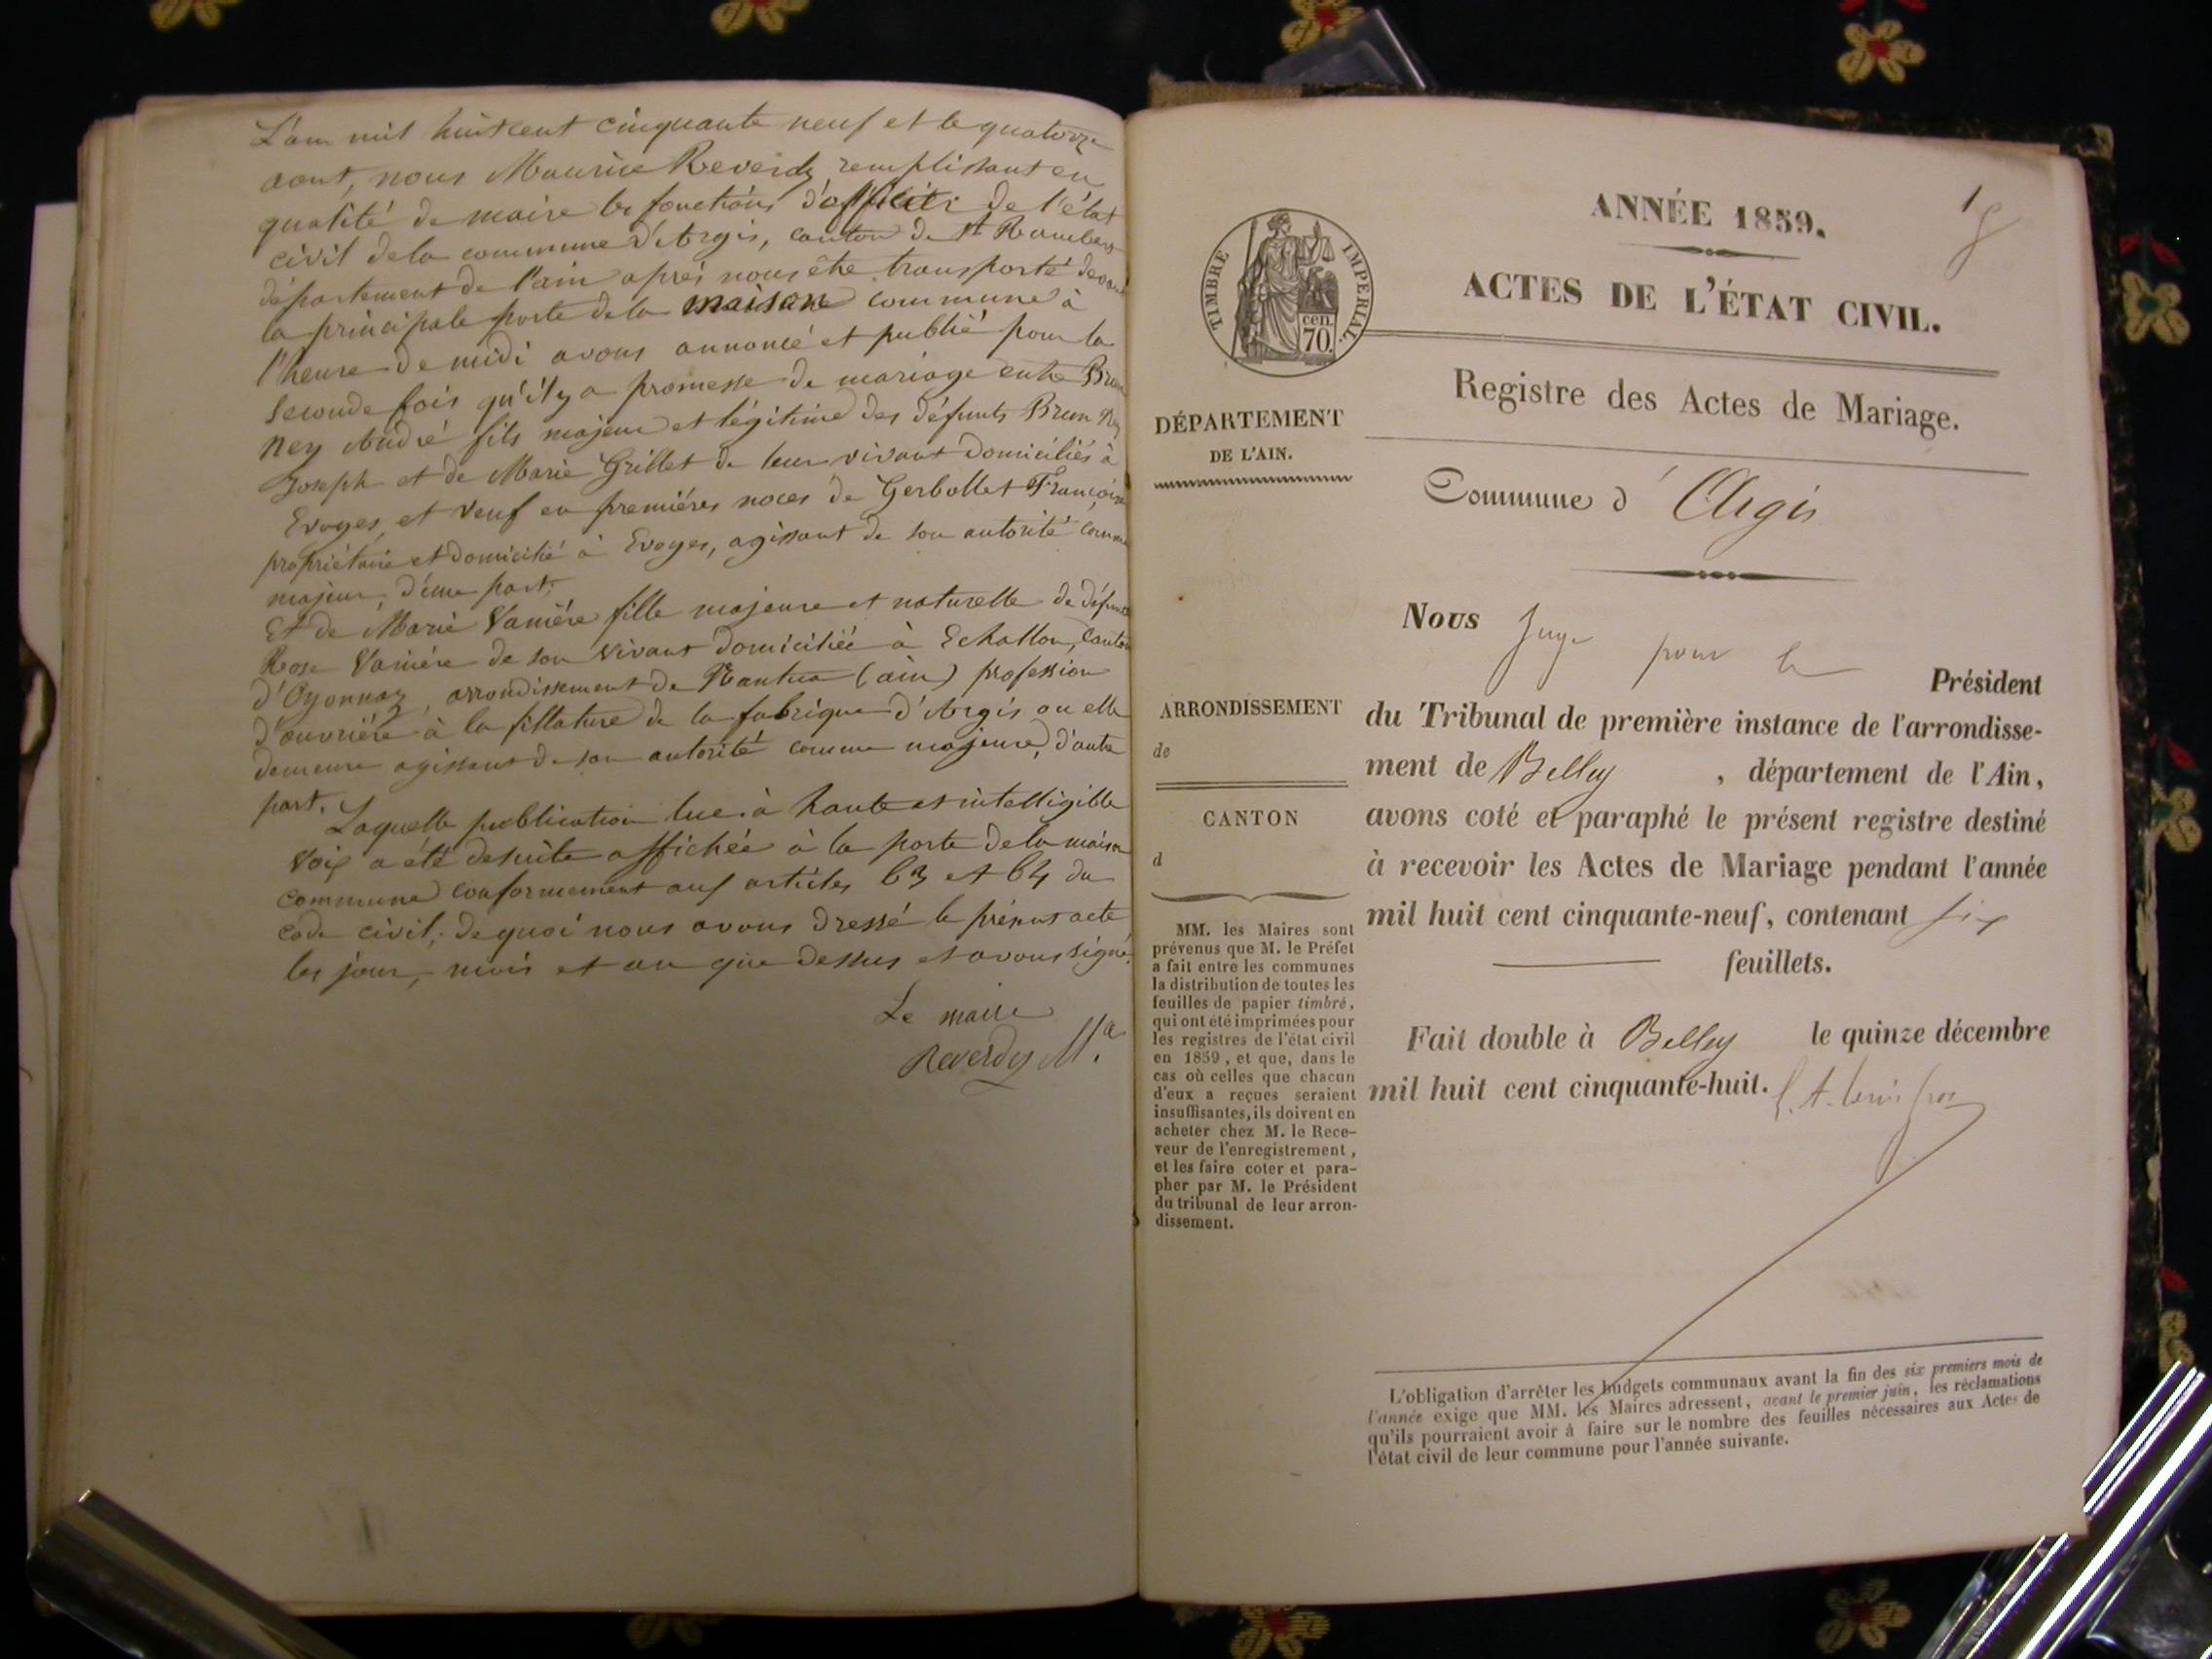 L'an mil huit cent cinquante neuf et le quatorze
aout, nous Maurice Reverdy remplissant en
qualité de maire les fonctions d'officier de l'état
civil de la commune d'Argis, canton de St Rambert
département de l'ain après nous être transporté devant
la principale porte de la maison commune à
l'heure de midi avons annoncé et publié pour la
seconde fois qu'il y a promesse de mariage entre Brun
Ney André fils majeur et légitime des défunts Brun Ney
Joseph et de Marie Grillet de leur vivant domiciliés à
Evoges, et veuf en premières noces de Gerbollet Françoise
propriétaire et domicilié à Evoges, agissant de son autorité comme
majeur, d'une part,
Et de Marie Vanière fille majeure et naturelle de défunte
Rose Vanière de son vivant domiciliée à Echallon, canton
d'Oyonnax, arrondissement de Nantua (ain) profession
d'ouvrière à la fillature de la fabrique d'Argis ou elle
demeure agissant de son autorité comme majeure, d'autre
part.
Laquelle publication lue à haute et intelligible
voix a été desuite affichée à la porte de la maison
commune conformement aux articles 63 et 64 du
code civil; de quoi nous avons dressé le présent acte
les jour, mois et an que dessus et avons signé.
Le maire
Reverdy Ma
1
ANNÉE 1859.
ACTES DE L'ÉTAT CIVIL.
TIMBRE IMPÉRIAL.
cen.
70.
Registre des Actes de Mariage.
DÉPARTEMENT
DE L'AIN.
Commune d'Argis
ARRONDISSEMENT
de
CANTON
d
MM. les Maires sont
prévenus que M. le Préfet
a fait entre les communes
la distribution de toutes les
feuilles de papier timbré,
qui ont été imprimées pour
les registres de l'état civil
en 1859, et que, dans le
cas où celles que chacun
d'eux a reçues seraient
insuffisantes, ils doivent en
acheter chez M. le Rece-
veur de l'enregistrement,
et les faire coter et para-
pher par M. le Président
du tribunal de leur arron-
dissement.
Nous Juge pour le
Président
du Tribunal de première instance de l'arrondisse-
ment de Belley, département de l'Ain,
avons coté et paraphé le présent registre destiné
à recevoir les Actes de Mariage pendant l'année
mil huit cent cinquante-neuf, contenant six
feuillets.
Fait double à Belley le quinze décembre
mil huit cent cinquante-huit.
L'obligation d'arrêter les budgets communaux avant la fin des six premiers mois de
l'année exige que MM. les Maires adressent, avant le premier juin, les réclamations
qu'ils pourraient avoir à faire sur le nombre des feuilles nécessaires aux Actes de
l'état civil de leur commune pour l'année suivante.